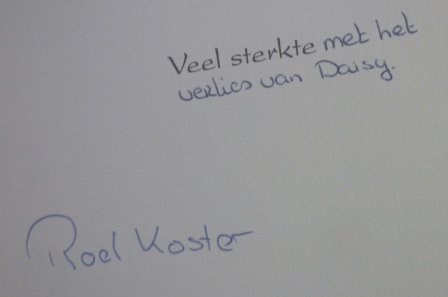 Veel sterkte met het
verlies van Daisy.
Roel Koster